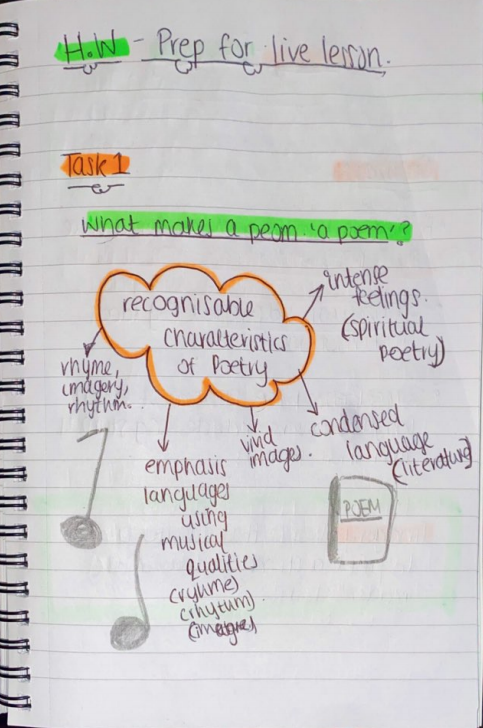 H.W - Prep for live lesson.
Task 1
What makes a peom 'a poem'?
recognisable
characteristics
of Poetry
intense
feelings.
(spiritual
poetry)
rhyme,
imagery,
rhythm.
condensed
language
(literature)
vivid
images.
emphasis
languages
using
musical
qualities
(ryhme)
(rhytum)
POEM